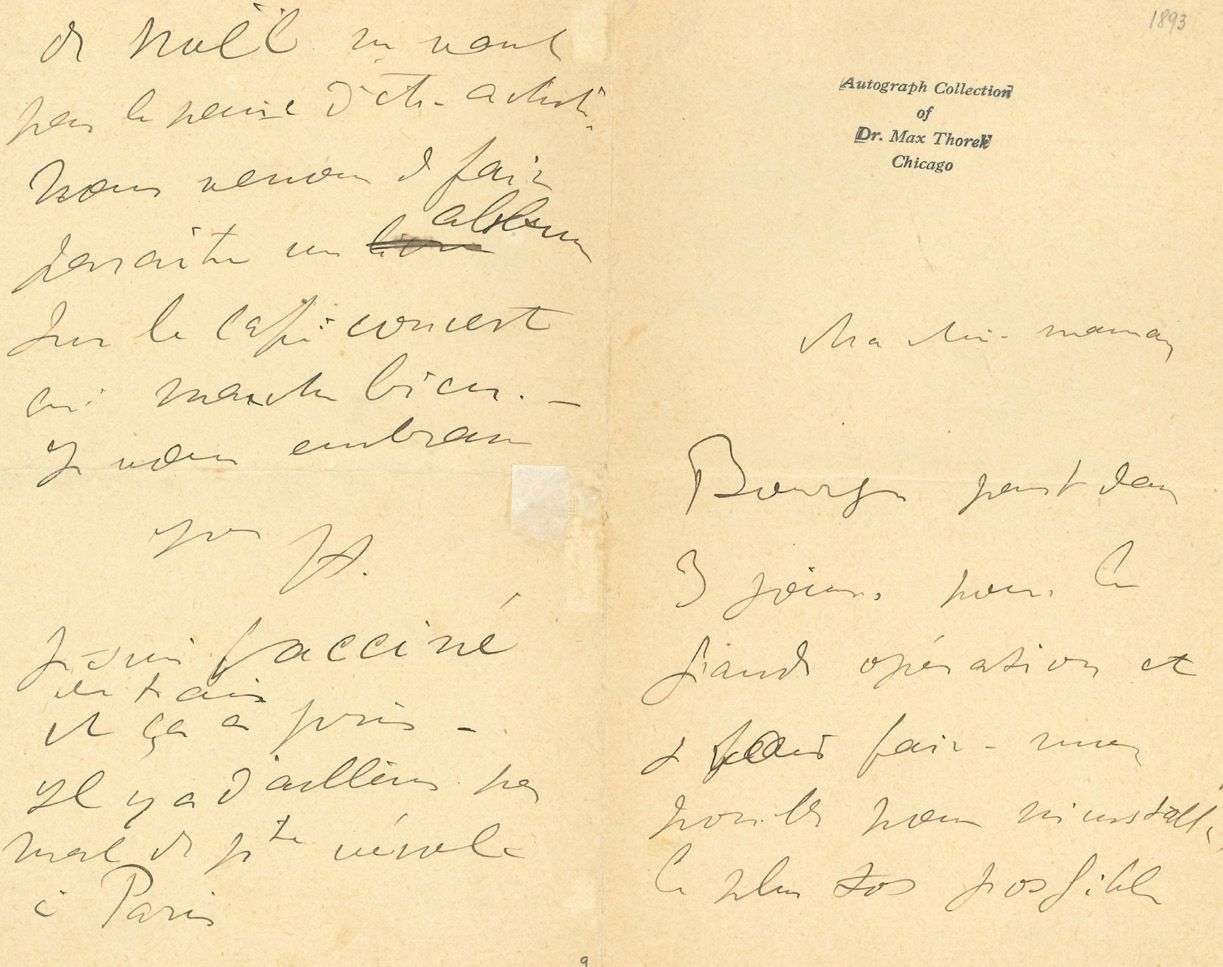 1893
Autograph Collection
of
Dr. Max Thorek
Chicago
Ma chère maman
Bourges part dans
3 jours pour la
grande opération et
je vais faire mon
possible pour m'installer
le plus tos possible
de Noël ne vaut
pas la peine d'être acheté.
Nous venons de faire
paraître un livre album
sur le café concert
qui marche bien. —
Je vous embrasse
yrs H.
je suis vacciné
et ça a pris –
Il y a d'ailleurs pas
mal de pte vérole
à Paris
9